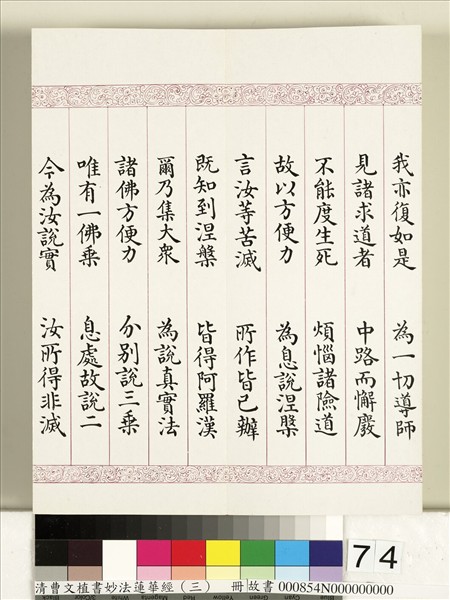 我亦復如是 為一切導師
見諸求道者 中路而懈廢
不能度生死 煩惱諸險道
故以方便力 為息說涅槃
言汝等苦滅 所作皆已辦
既知到涅槃 皆得阿羅漢
爾乃集大眾 為說真實法
諸佛方便力 分別說三乘
唯有一佛乘 息處故說二
今為汝說實 汝所得非滅
74
清曹文植書妙法蓮華經(三) 冊 故書 000854N000000000